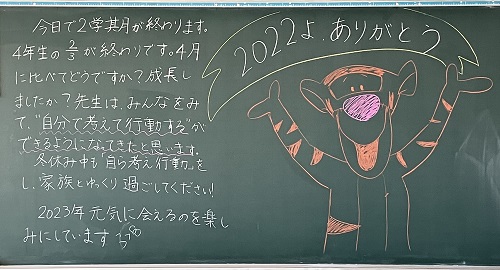 今日で2学期が終わります。
4年生の2/3が終わりです。4月
に比べてどうですか？成長し
ましたか？先生は、みんなをみ
て、"自分で考えて行動する"が
できるようになってきたと思います。
冬休み中も「自ら考え行動」を
し、家族とゆっくり過ごしてください！
2023年元気に会えるのを楽し
みにしています
2022よ、ありがとう